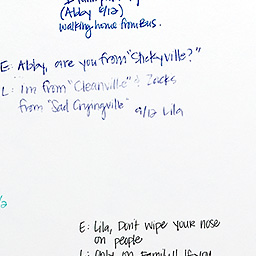 (Abby 9/12)
walking home from bus.
E: Abby, are you from "Stickyville?"
L: I'm from "Cleanville" & Zacks
from "Sad Cryingville" 9/12 Lila
E: Lila, Don't wipe your nose
on people
L: Only on Family!!